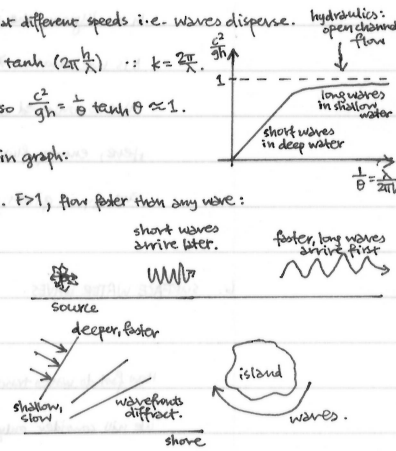 at different speeds i.e. waves disperse.
hydraulics:
open channel
flow
tanh (2π h/λ) ∵ k = 2π/λ.
c²/gh
1
so c²/gh = 1/θ tanh θ ≈ 1.
long waves
in shallow
water
short waves
in deep water
in graph:
1/θ = λ/2πh
. F>1, flow faster than any wave:
short waves
arrive later.
faster, long waves
arrive first
source
deeper, faster
shallow,
slow
wavefronts
diffract.
island
waves.
shore